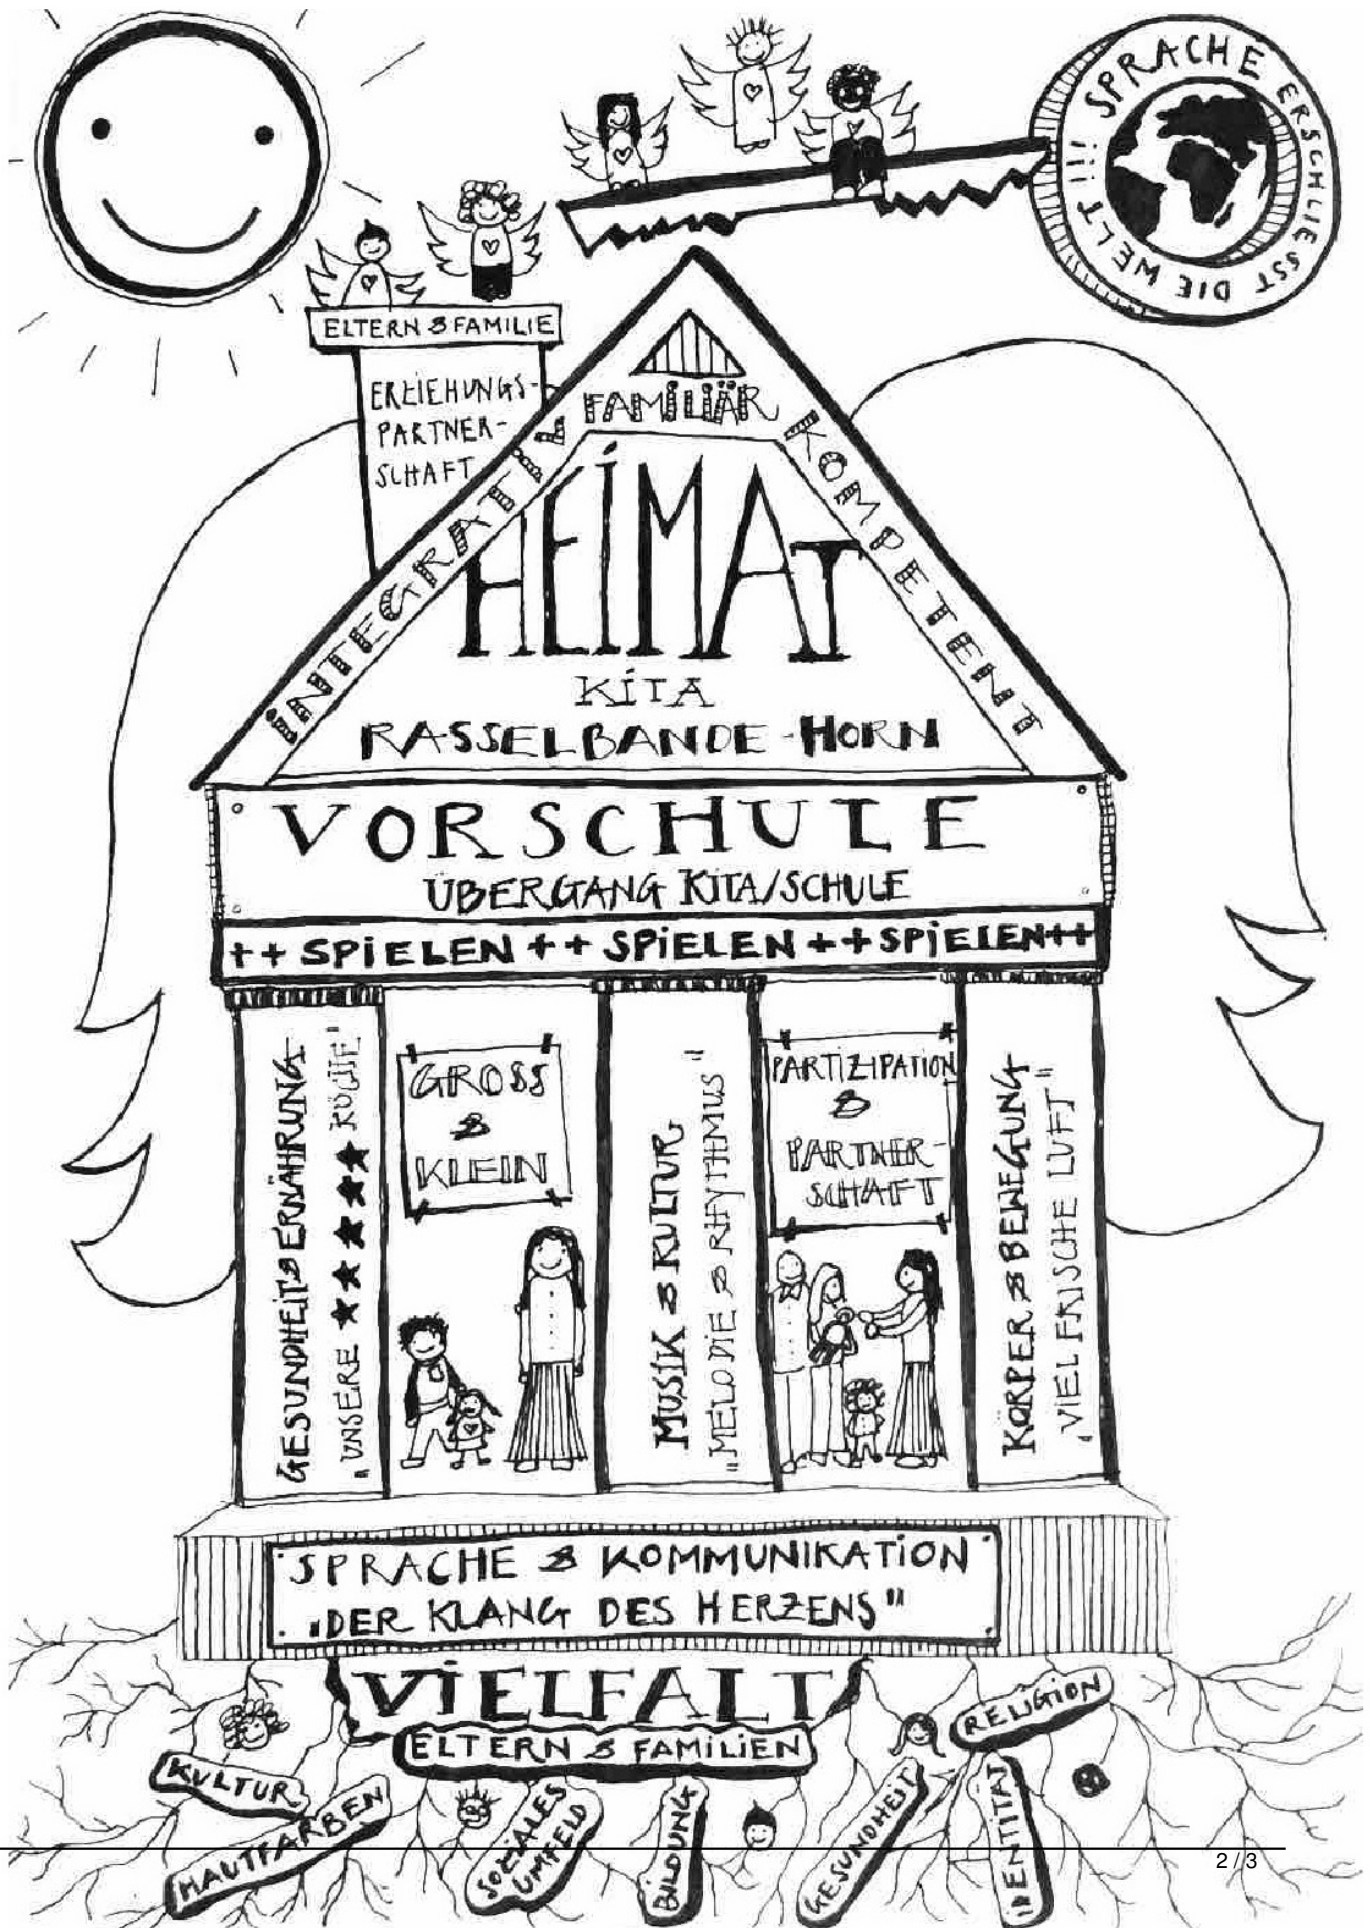 SPRACHE ERSCHLIESST DIE WELT!!!
ELTERN & FAMILIE
ERZIEHUNGS-
PARTNER-
SCHAFT
INTEGRATIV
FAMILIÄR
KOMPETENT
HEIMAT
KITA
RASSELBANDE-HORN
VORSCHULE
ÜBERGANG KITA/SCHULE
++ SPIELEN ++ SPIELEN ++ SPIELEN ++
GESUNDHEIT & ERNÄHRUNG
„UNSERE ★★★★★ KÜCHE"
GROSS
&
KLEIN
MUSIK & KULTUR
„MELODIE & RHYTHMUS"
PARTIZIPATION
&
PARTNER-
SCHAFT
KÖRPER & BEWEGUNG
„VIEL FRISCHE LUFT"
SPRACHE & KOMMUNIKATION
„DER KLANG DES HERZENS"
VIELFALT
ELTERN & FAMILIEN
KULTUR
HAUTFARBEN
SOZIALES
UMFELD
BILDUNG
GESUNDHEIT
RELIGION
IDENTITÄT
2 / 3